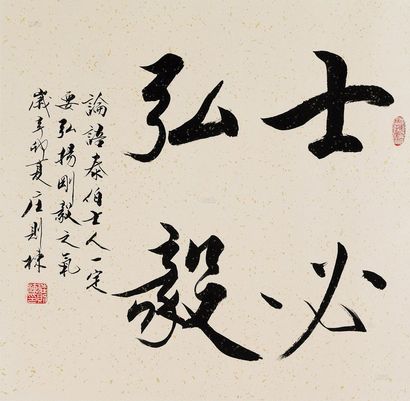 士必
弘毅
論語泰伯士人一定
要弘揚剛毅之氣
歲辛卯夏庄則棟